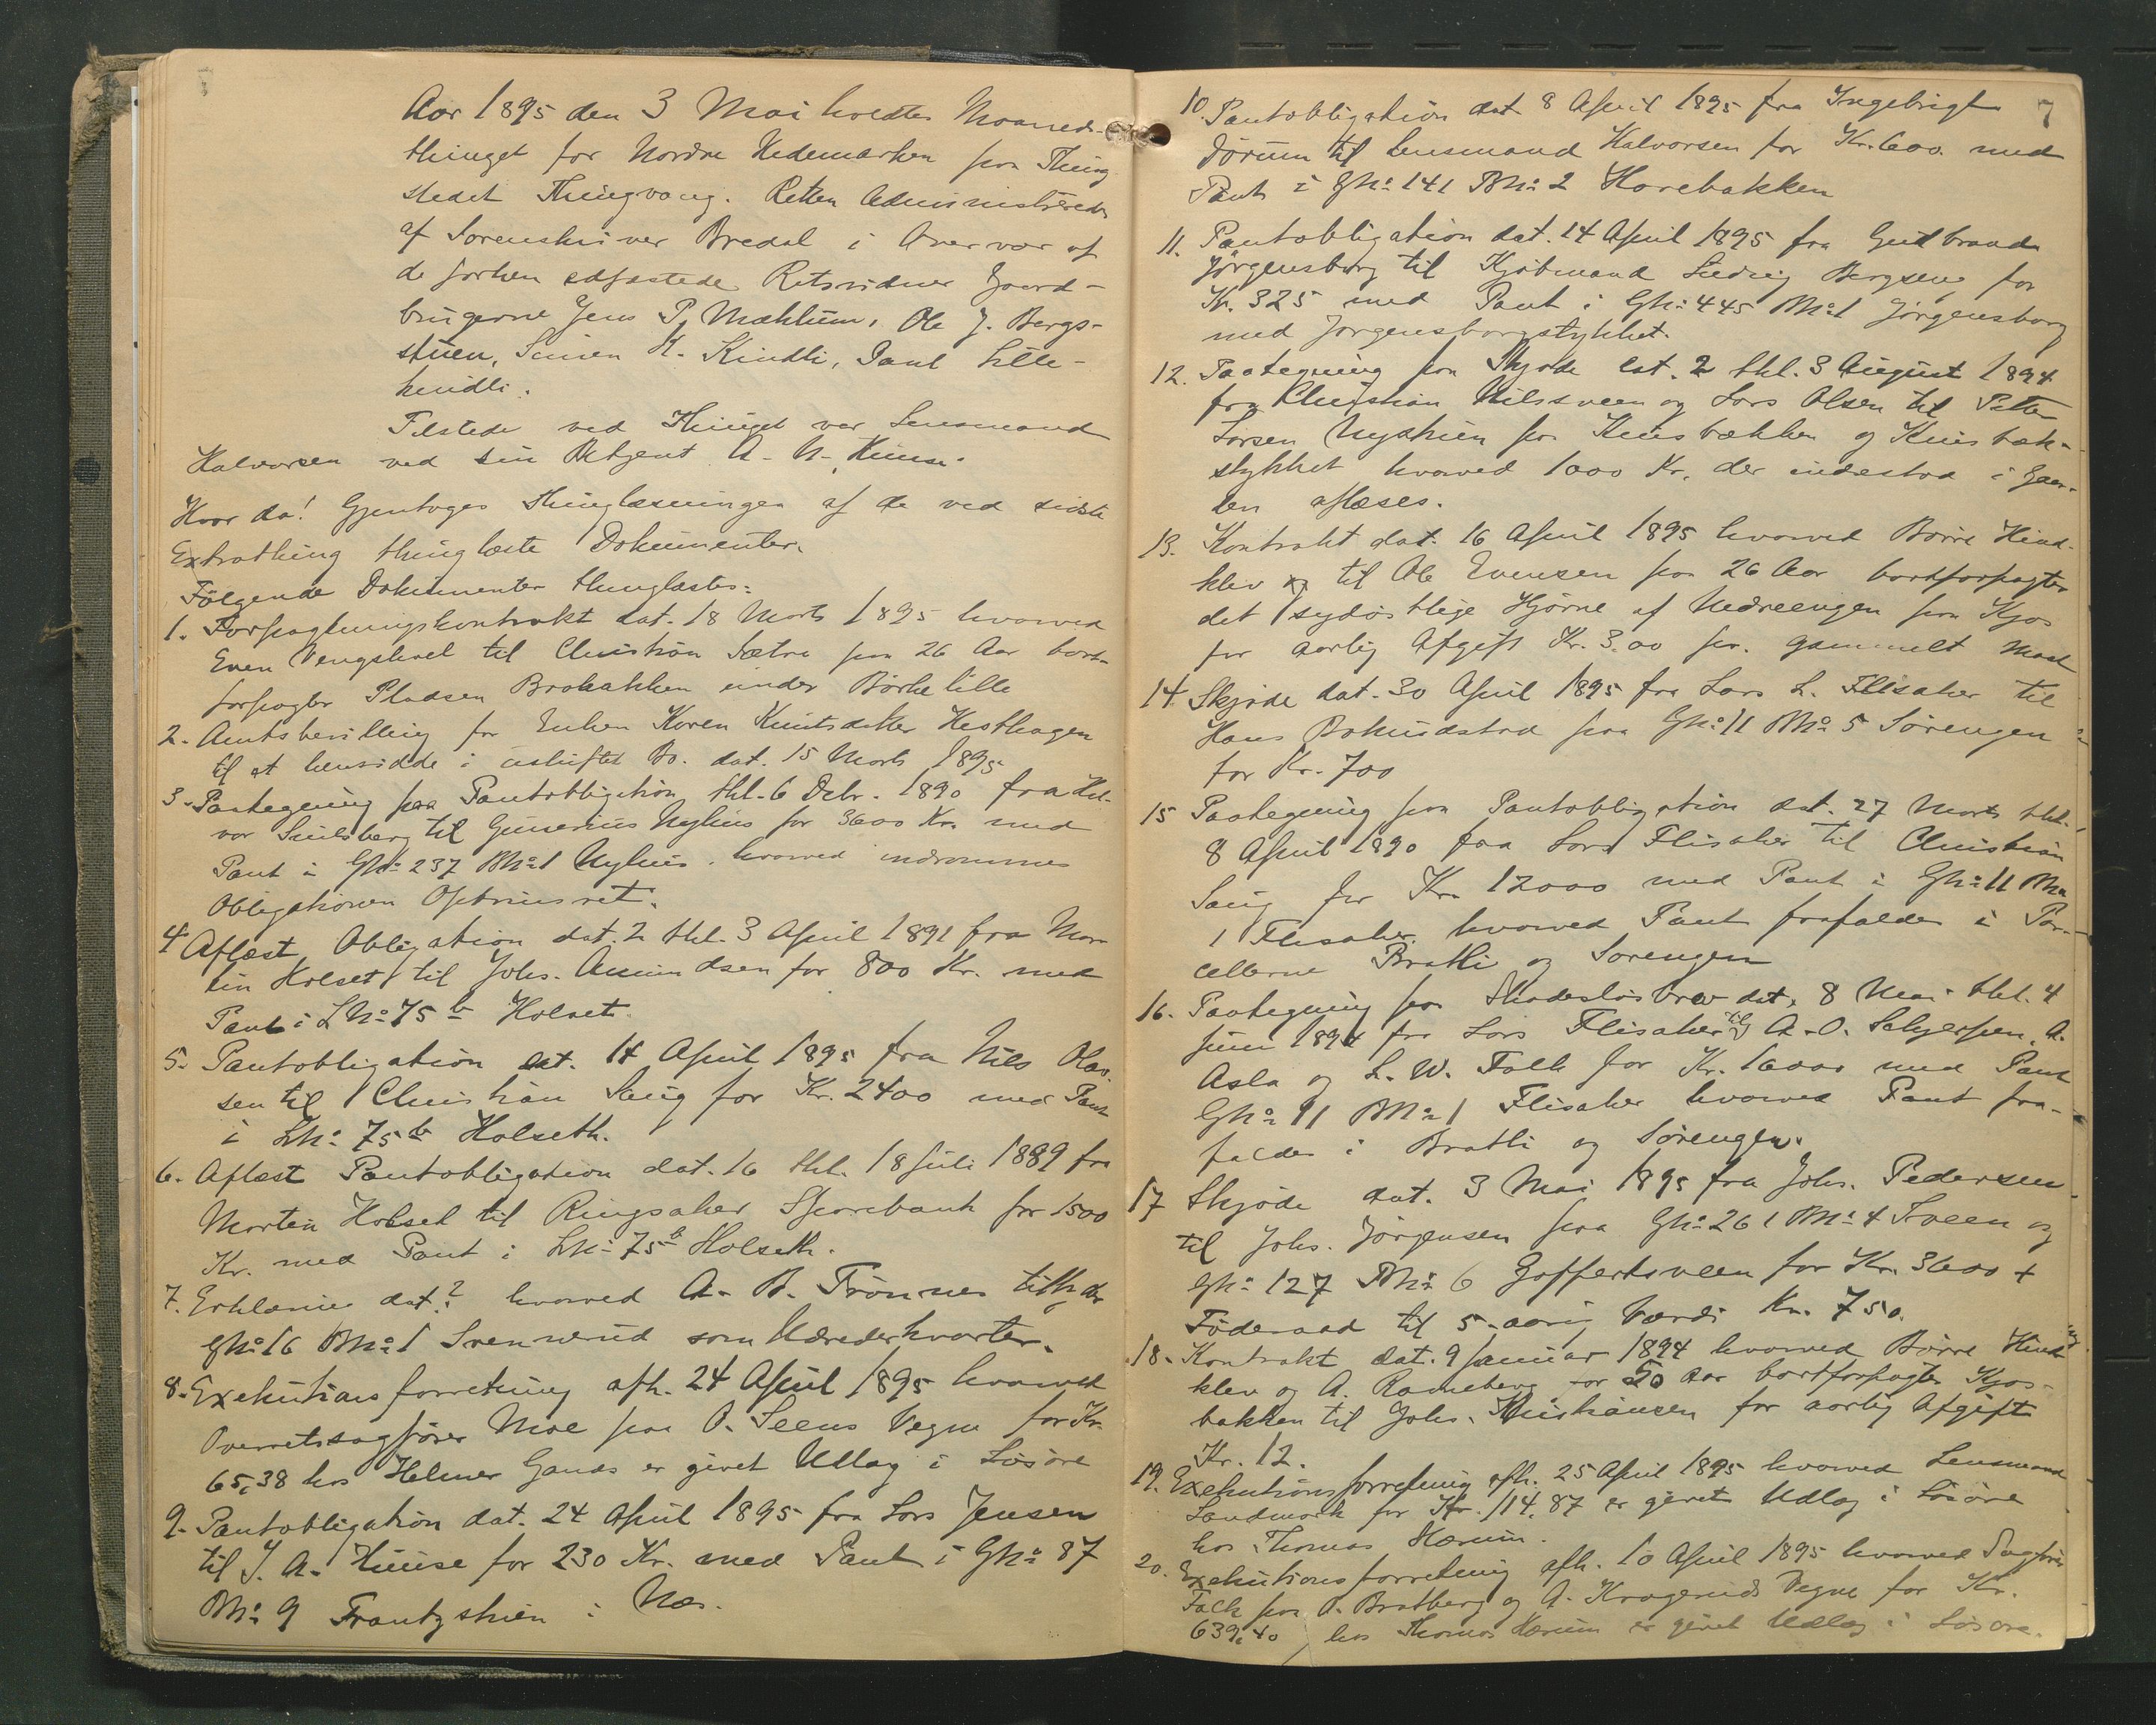 Aar 1895 den 3 Mai holdtes Maaneds-
thinget for Nordre Hedemarken paa Thing
stedet Thingvang. Retten administreredes
af Sorenskriver Bredal i Overvær af
de forhen edfæstede Retsvidner Gaard-
brugerne Jens P. Mæhlum, Ole J. Bergs-
stuen, Simen H. Kindli, Paul Lille-
kindli.
Tilstede ved Thinget var Lensmand
Halvorsen ved sin Betjent A. N. Huuse.
Hvor da! Gjentoges Thinglæsningen af de ved sidste
Extrathing thinglæste Dokumenter.
Følgende Dokumenter thinglæstes:
1. Forpagtningskontrakt dat. 18 Marts 1895 hvorved
Even Vengshoel til Christian Sætre paa 26 Aar bort-
forpagter Pladsen Brobakken under Børke lille
2. Amtsbevilling for Enken Karen Knutsdatter Hesthagen
til at hensidde i uskiftet Bo. dat. 15 Marts 1895
3. Paategning paa Pantobligation thl. 6 Debr. 1890 fra Hal-
vor Smedsberg til Gunerius Nyhus for 3600 Kr. med
Pant i Gno 237 Bno 1 Nyhus. hvorved indrømmes
Obligationen Opt. rinsret.
4 Aflæst Obligation dat. 2 thl. 3 April 1891 fra Mor-
tin Holset til Johs. Amundsen for 800 Kr. med
Pant i LNo 75 b Holset.
5. Pantobligation dat. 14 April 1895 fra Nils Olav-
sen til Christian Saug for Kr. 2400 med Pant
i LNo 75 b Holseth.
6. Aflæst Pantobligation dat. 16 thl. 18 Juli 1889 fra
Morten Holset til Ringsaker Sparebank for 1500
Kr. med Pant i LNo 75 b Holseth.
7. Erklæring dat? hvorved A. B. Trønnes
GNo 16 BNo 1 Svennerud som
8. Exekutionsforretning afh. 24 April 1895 hvorved
Overretssagfører Moe paa O. Seens Vegne for Kr.
65,38 hos Helmer Ganaas er givet Udlæg i Løsøre
9. Pantobligation dat. 24 April 1895 fra Lars Jensen
til J. A. Huuse for 230 Kr. med Pant i GNo 87
BNo 9 Frantzstuen i Næs.
7
10. Pantobligation dat 8 April 1895 fra Ingebrigt
Dørum til Lensmand Halvorsen for Kr. 600. med
Pant i GNo 141 BNo 2 Harebakken
11. Pantobligation dat. 14 April 1895 fra Gudbrand
Jørgensborg til Kjøbmand Ludvig Bergseng for
Kr. 325 med Pant i GNo 445 BNo 1 Jørgensborg
med Jørgensborgstykket.
12. Paategning paa Skjøde dat. 2 thl. 3 August 1894
fra Christian Nilssveen og Lars Olsen til Petter
Larsen Nystuen paa Kuisbækken og Kuisbæk-
stykket hvorved 1000 Kr. der indestod i Gaar-
den aflæses.
13. Kontrakt dat. 16 April 1895 hvorved Børre Hind-
klev til Ole Evensen paa 26 Aar bortforpagter
det sydøstlige Hjørne af Nedreengen paa Kjos
for aarlig Afgift Kr. 3.00 pr. gammelt Maal
14. Skjøde dat. 30 April 1895 fra Lars L. Flisaker til
Hans Bokudstad paa GNo 11 BNo 5 Sørengen
for Kr. 700
15 Paategning paa Pantobligation dat. 27 Marts thl.
8 April 1890 fra Lars Flisaker til Christian
Saug for Kr. 12000 med Pant i GNo 11 BNo
1 Flisaker. hvorved Pant frafaldes i Par-
cellerne Bratli og Sørengen
16. Paategning paa Skadesløsbrev dat. 8 Mai thl. 4
Juni 1894 fra Lars Flisaker til A. O. Schjerpen, A.
Asla og L. W. Falk for Kr. 16000 med Pant
GNo 11 BNo 1 Flisaker hvorved Pant fra-
faldes i Bratli og Sørengen.
17 Skjøde dat. 3 Mai 1895 fra Johs. Pedersen
til Johs. Jørgensen paa GNo 261 BNo 4 Sveen og
GNo 127 BNo 6 Goffertsveen for Kr. 3600 +
Føderaad til 5-aarig Værdi Kr. 750.
18. Kontrakt dat. 9 Januar 1894 hvorved Børre Hind-
klev og A. Rameberg for 50 Aar bortforpagter Kjos-
bakken til Johs. Kristiansen for aarlig Afgift
Kr. 12.
19. Exekutionsforretning afh. 25 April 1895 hvorved Lensmand
Landmark for Kr. 114,87 er givet Udlæg i Løsøre
hos Thomas Hærum.
20. Exekutionsforretning afh. 10 April 1895 hvorved Sagfører
Falk paa O. Bratberg og A. Kragerud Vegne for Kr.
639,40 hos Thomas Hærum er givet Udlæg i Løsøre.